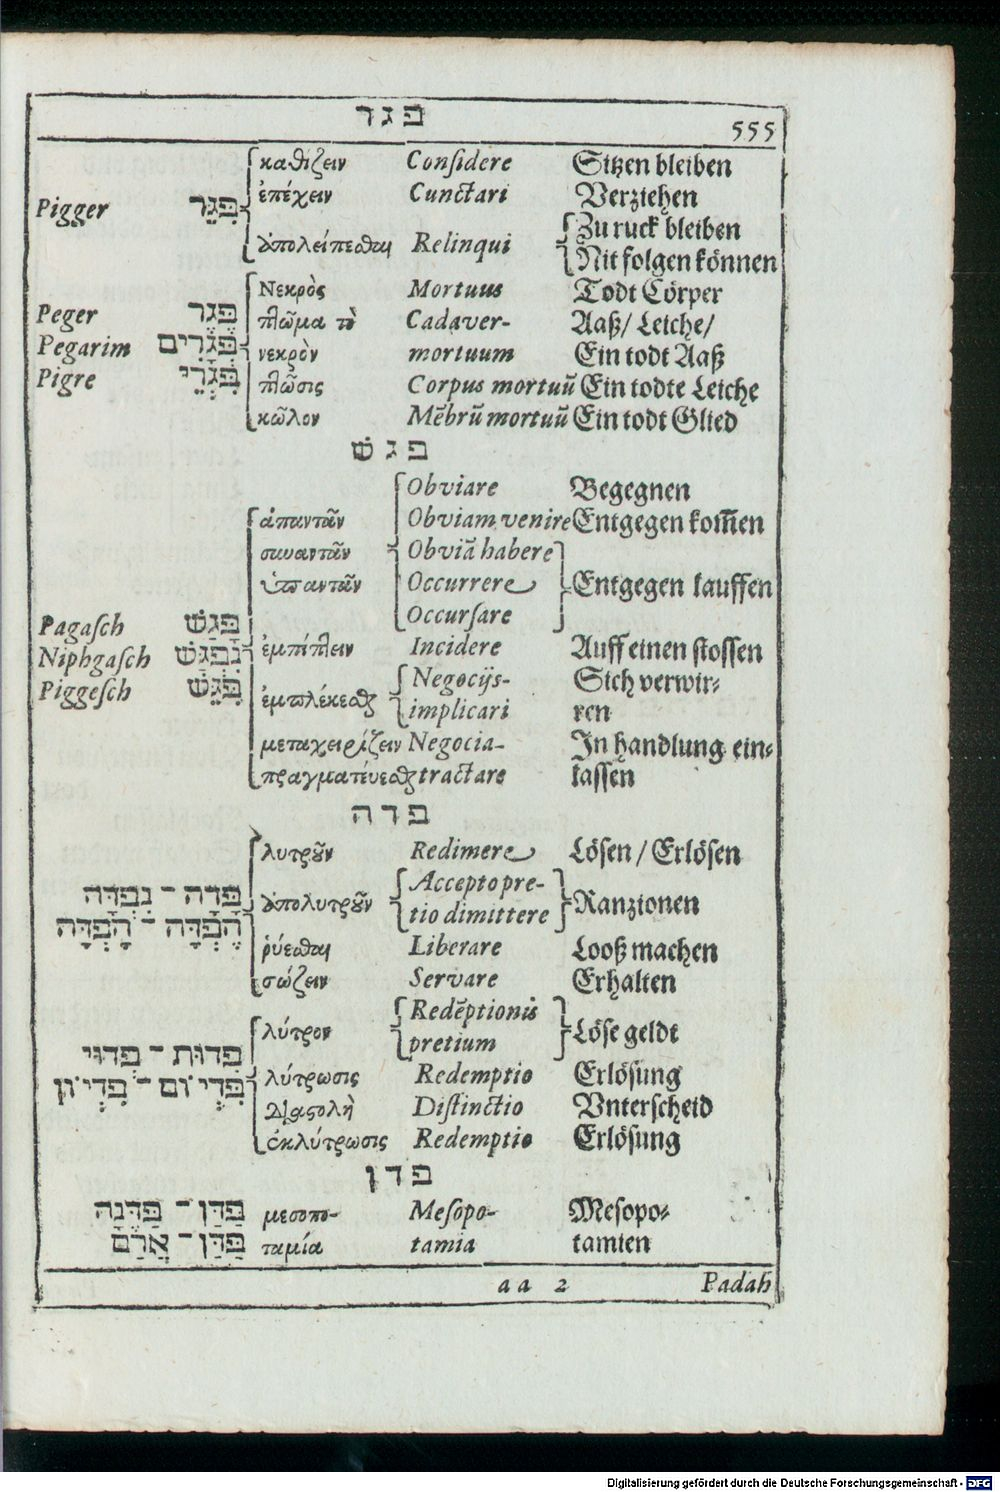 פגר
555
καθίζειν Considere Sitzen bleiben
ἐπέχειν Cunctari Verziehen
Pigger פִּגֵּר
Zu ruck bleiben
ἀπολείπεσθαι Relinqui
Nit folgen können
Νεκρὸς Mortuus Todt Cörper
Peger פֶּגֶר πτῶμα τὸ Cadaver- Aaß/ Leiche/
Pegarim פְּגָרִים νεκρὸν mortuum Ein todt Aaß
Pigre פִּגְרֵי πτῶσις Corpus mortuū Ein todte Leiche
κῶλον Mēbrū mortuū Ein todt Glied
פגש
Obviare Begegnen
ἀπαντᾶν Obviam venire Entgegen kom̄en
συναντᾶν Obviā habere
ὑπαντᾶν Occurrere Entgegen lauffen
Occurſare
Pagaſch פָּגַשׁ
Niphgaſch נִפְגַּשׁ ἐμπίπτειν Incidere Auff einen stossen
Piggeſch פִּגֵּשׁ Negocijs- Sich verwir-
ἐμπλέκεσθαι implicari ren
μεταχειρίζειν Negocia- In handlung ein-
πραγματεύεσθαι tractare lassen
פדה
λυτροῦν Redimere Lösen / Erlösen
פָּדָה - נִפְדָּה Accepto pre-
ἀπολυτροῦν tio dimittere Ranzionen
הֶפְדָּה - הָפְדָּה
ῥύεσθαι Liberare Looß machen
σώζειν Servare Erhalten
Redēptionis
λύτρον pretium Löse geldt
פְּדוּת - פְּדוּי
פִּדְיוֹם - פִּדְיוֹן λύτρωσις Redemptio Erlösung
διαστολὴ Diſtinctio Vnterscheid
ἐκλύτρωσις Redemptio Erlösung
פדן
פַּדַּן - פַּדֶּנָה μεσοπο- Meſopo- Mesopo-
פַּדַּן - אֲרָם ταμία tamia tamien
aa 2 Padah
Digitalisierung gefördert durch die Deutsche Forschungsgemeinschaft - DFG